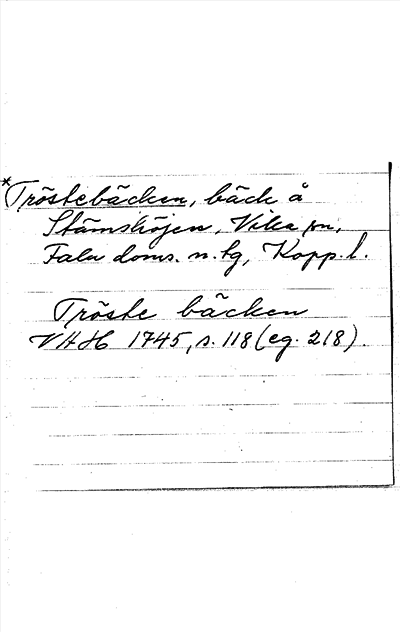 *Tröstebäcken, bäck å
Stämshöjen, Vika sn,
Falu doms. n. tg, Kopp. l.
Tröste bäcken
VHH 1745, s. 118 (eg. 218).